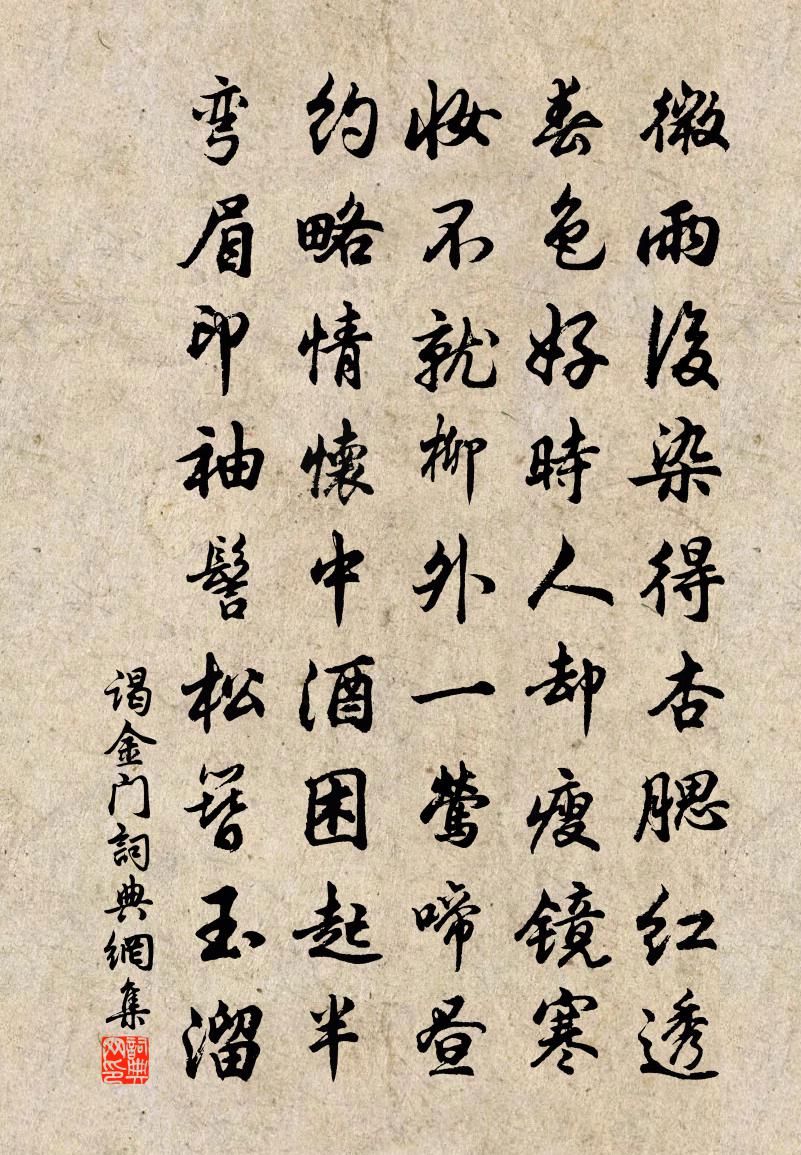 微雨後染得杏腮红透
春色好時人却瘦镜寒
妝不就柳外一莺啼昼
约略情懷中酒困起半
弯眉印袖髻松簪玉溜
谒金门詞典網集
詞典网印